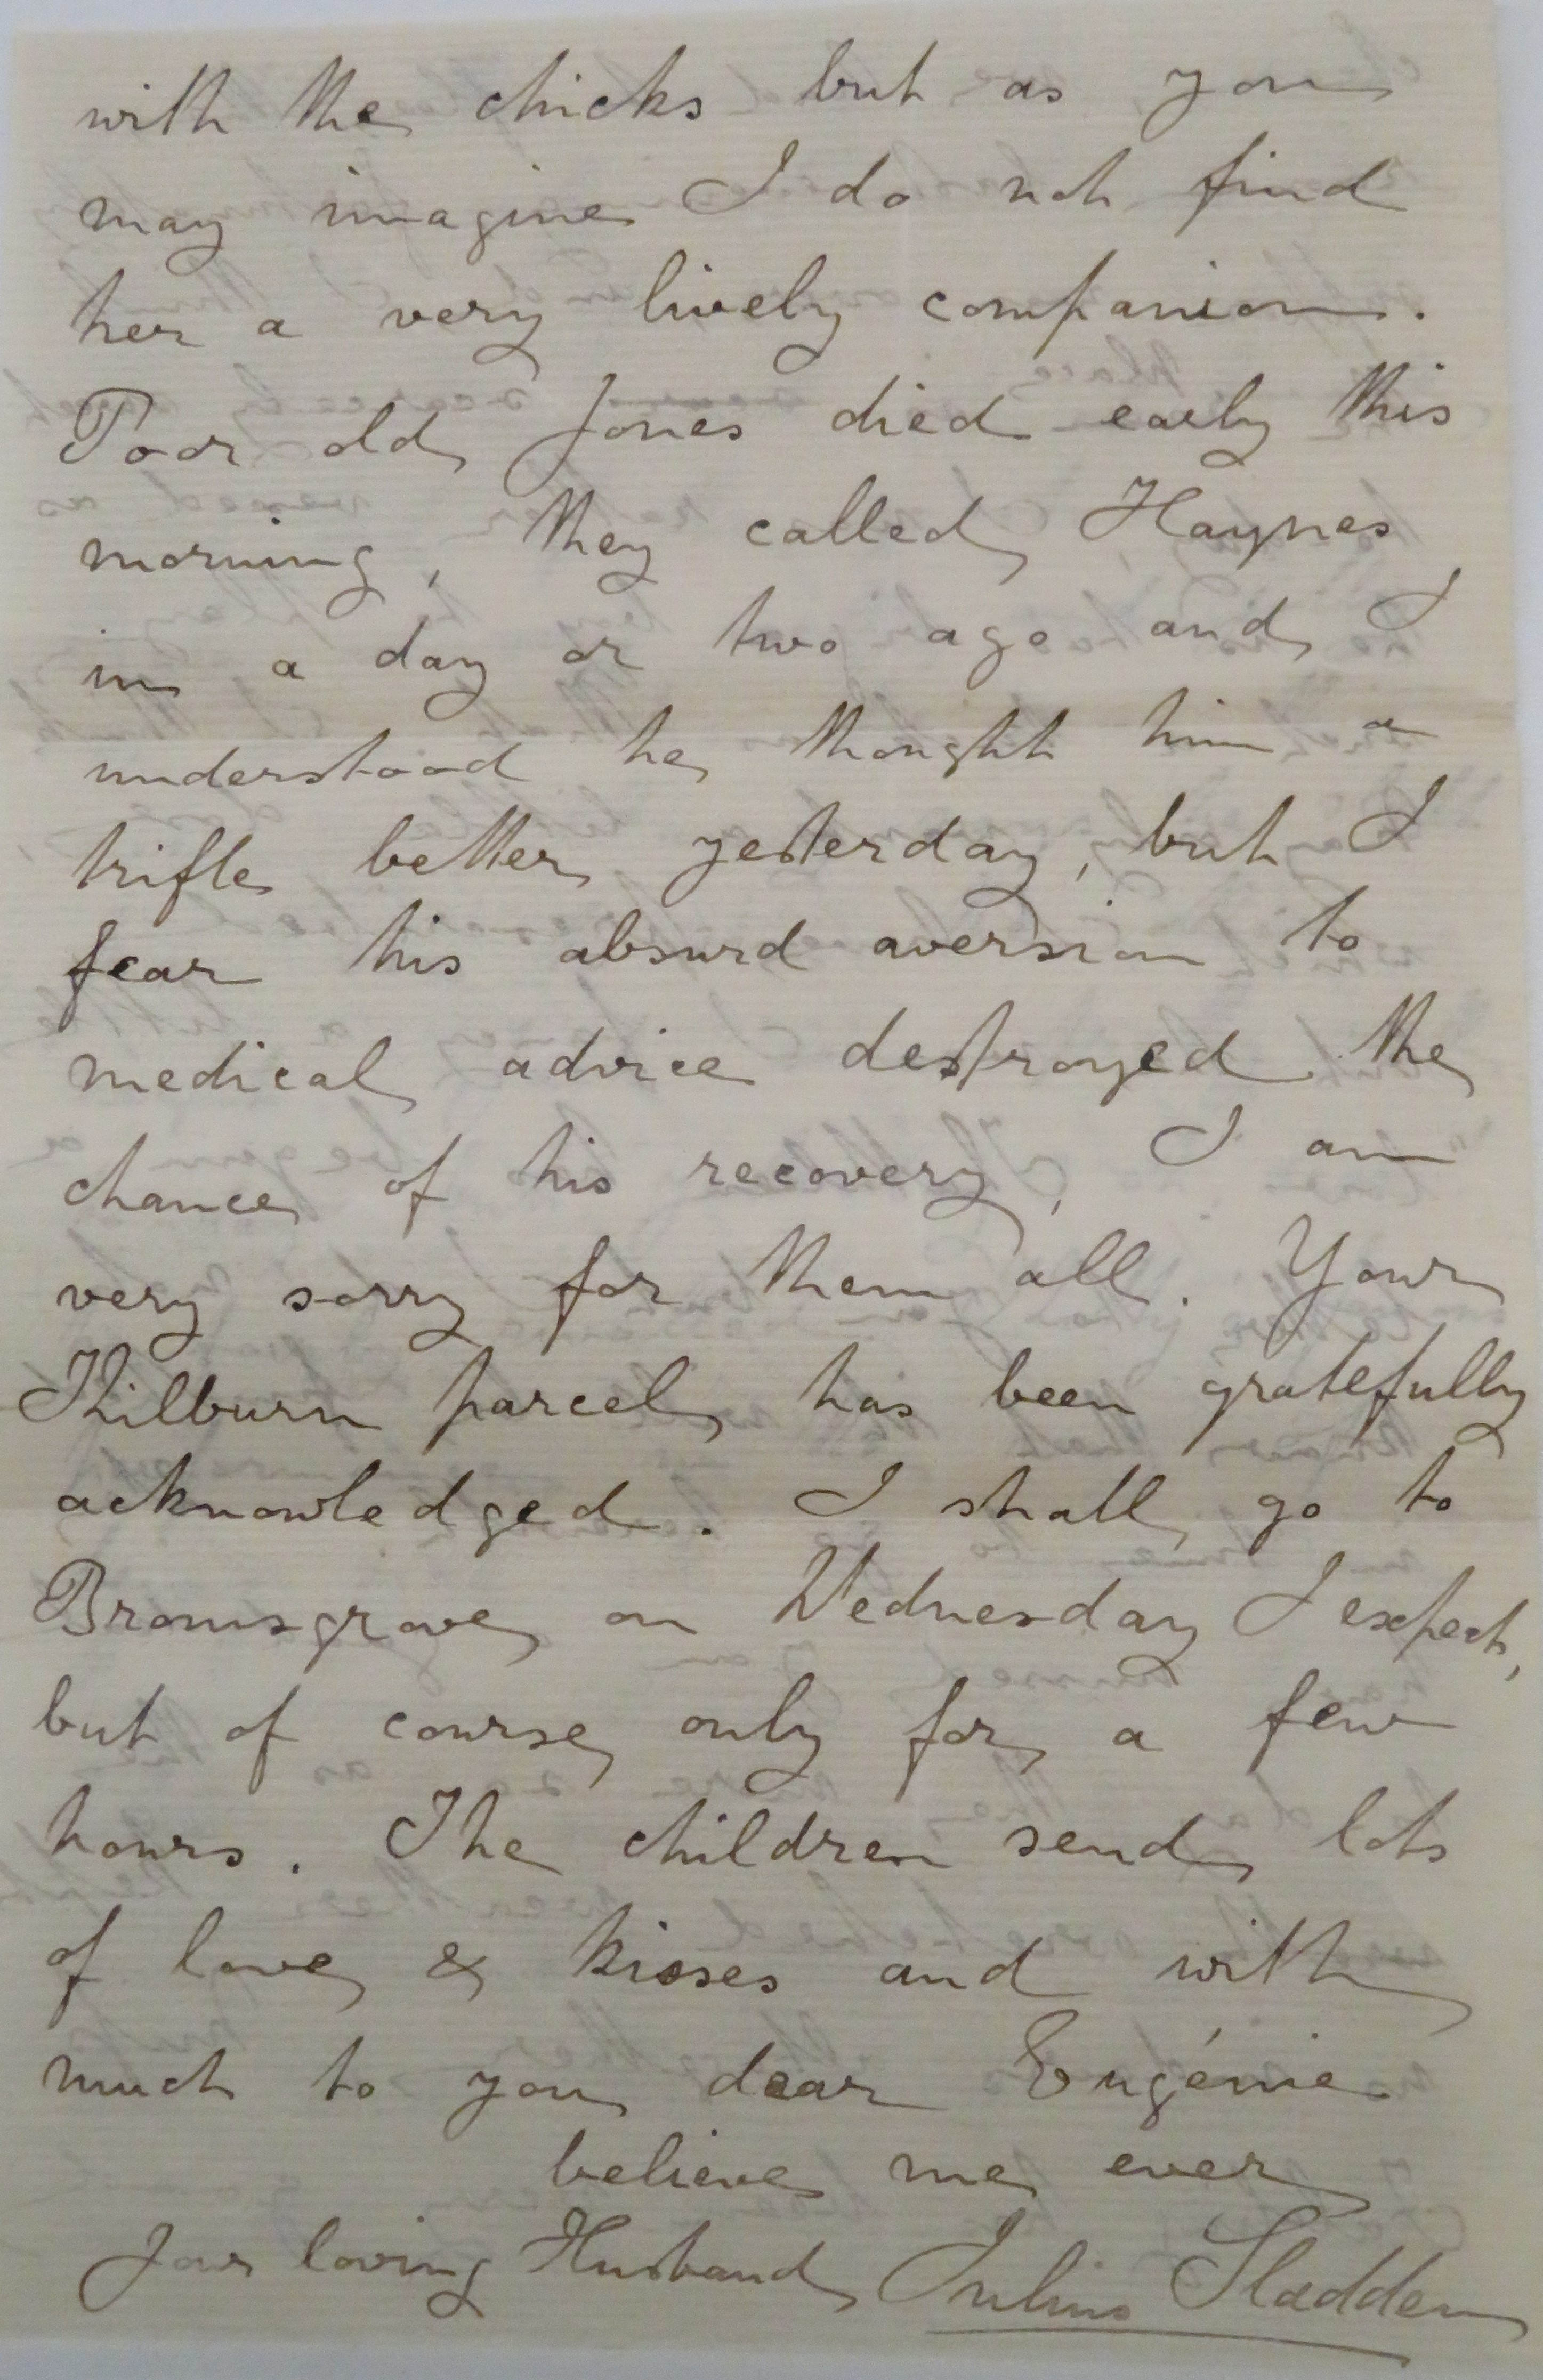 with the chicks but as you
may imagine I do not find
her a very lively companion.
Poor old Jones died early this
morning, they called Haynes
in a day or two ago and I
understood he thought him a
trifle better yesterday, but I
fear his absurd aversion to
medical advice destroyed the
chance of his recovery, I am
very sorry for them all. Your
Kilburn parcel has been gratefully
acknowledged. I shall go to
Bromsgrove on Wednesday I expect,
but of course only for a few
hours. The children send lots
of love & kisses and with
much to you dear Eugénie
believe me ever
Your loving Husband Julius Sladden